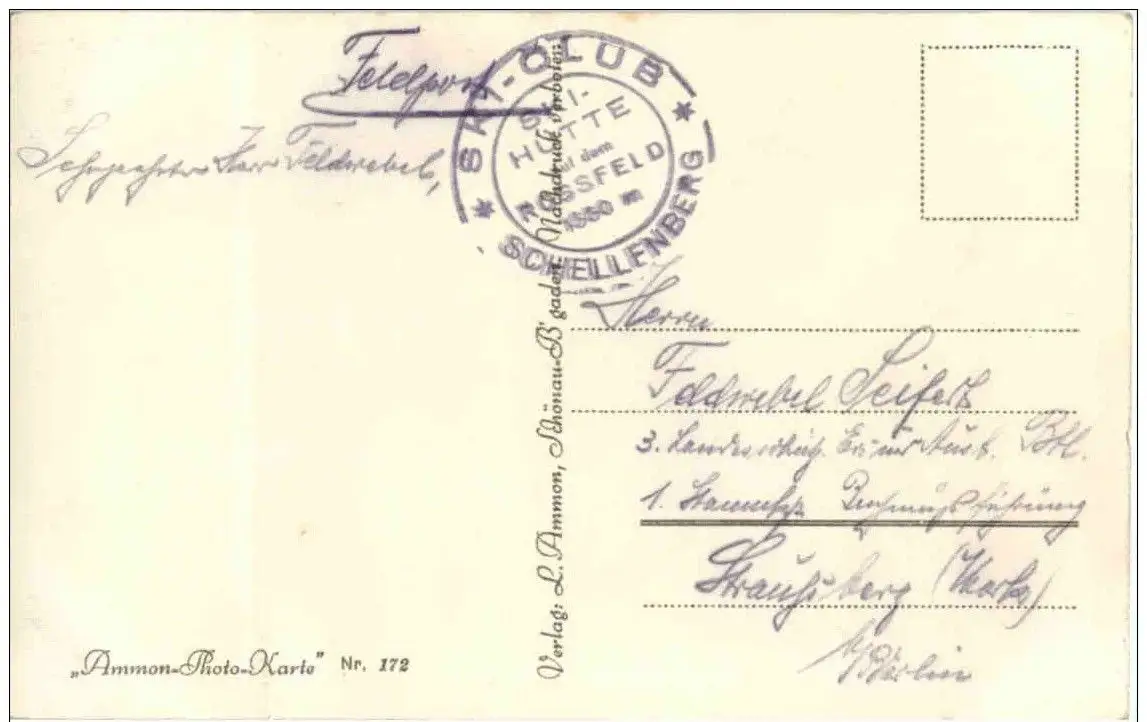 Feldpost
Sehrgeehrter Herr Feldwebel,
SKI-CLUB
SKI-
HÜTTE
auf dem
ROSSFELD
1550 m
SCHELLENBERG
Verlag: L. Ammon, Schönau-B'gaden. Nachdruck verboten.
Herrn
Feldwebel Seifert
3. Landesschütz. Ers. Ausb. Btl.
1. Stammkp. Rechnungsführung
Strausberg (Mark)
b/Berlin
„Ammon-Photo-Karte" Nr. 172